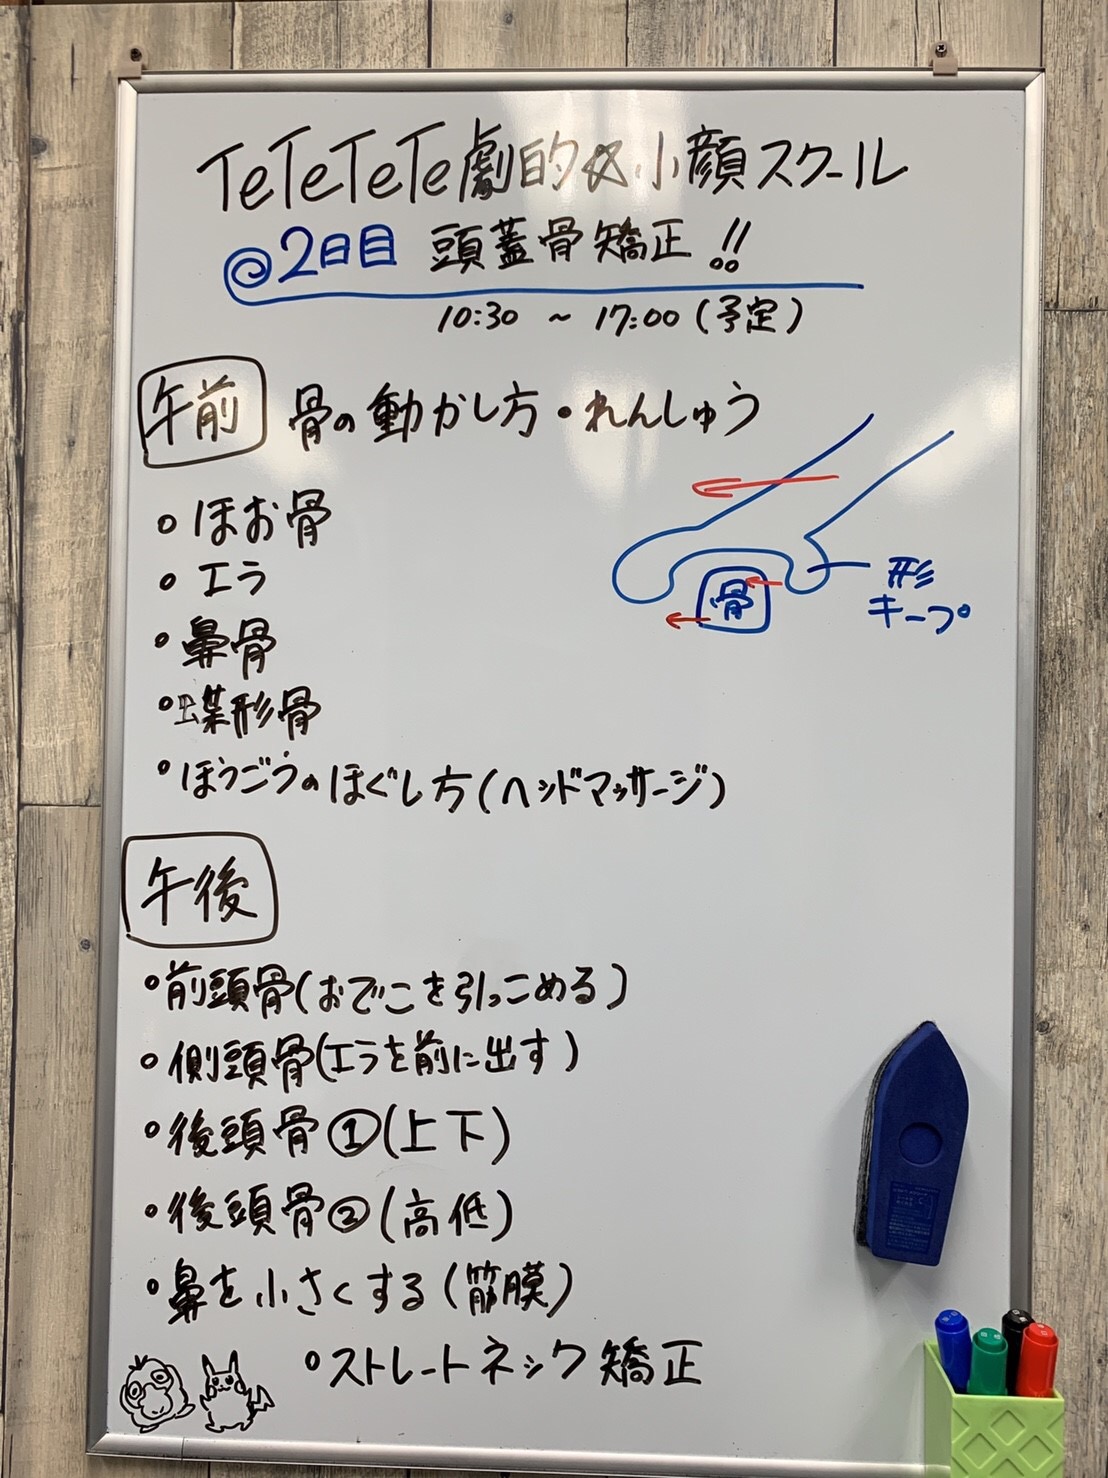 TeTeTeTe劇的☆小顔スクール
◎2日目 頭蓋骨矯正!!
10:30 ～ 17:00(予定)
午前 骨の動かし方・れんしゅう
○ほお骨
○エラ
○鼻骨
○蝶形骨
○ほうごうのほぐし方(ヘッドマッサージ)
骨
形
キープ
午後
○前頭骨(おでこを引っこめる)
○側頭骨(エラを前に出す)
○後頭骨①(上下)
○後頭骨②(高低)
○鼻を小さくする(筋膜)
○ストレートネック矯正